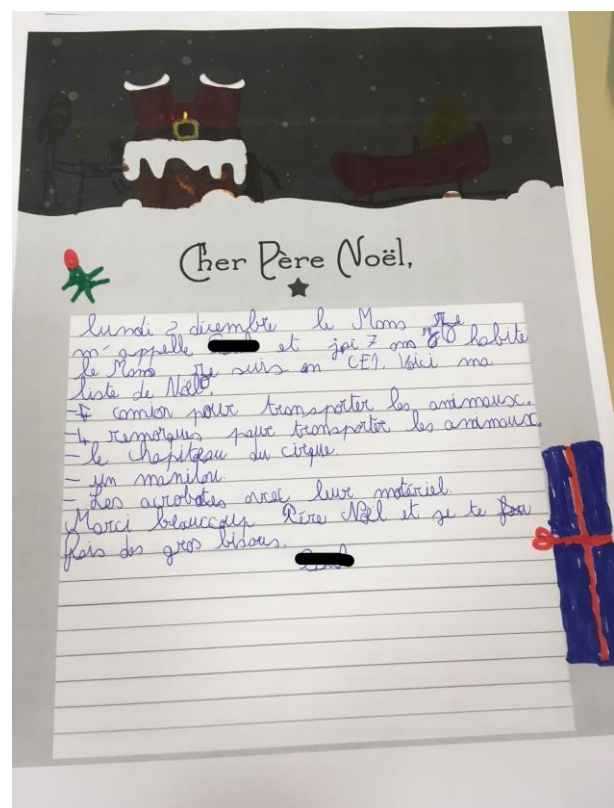 Cher Père Noël,
lundi 2 décembre le Mans Je
m'appelle et jai 7 ans J habite
le Mans Je suis en CE1. Voici ma
liste de Noël.
- camion pour transporter les animaux.
-4 remorques pour transporter les animaux.
- le chapiteau du cirque.
- un manitou.
- Les acrobates avec leur matériel.
Marci beaucoup Père Noël et je te
fais des gros bisous.